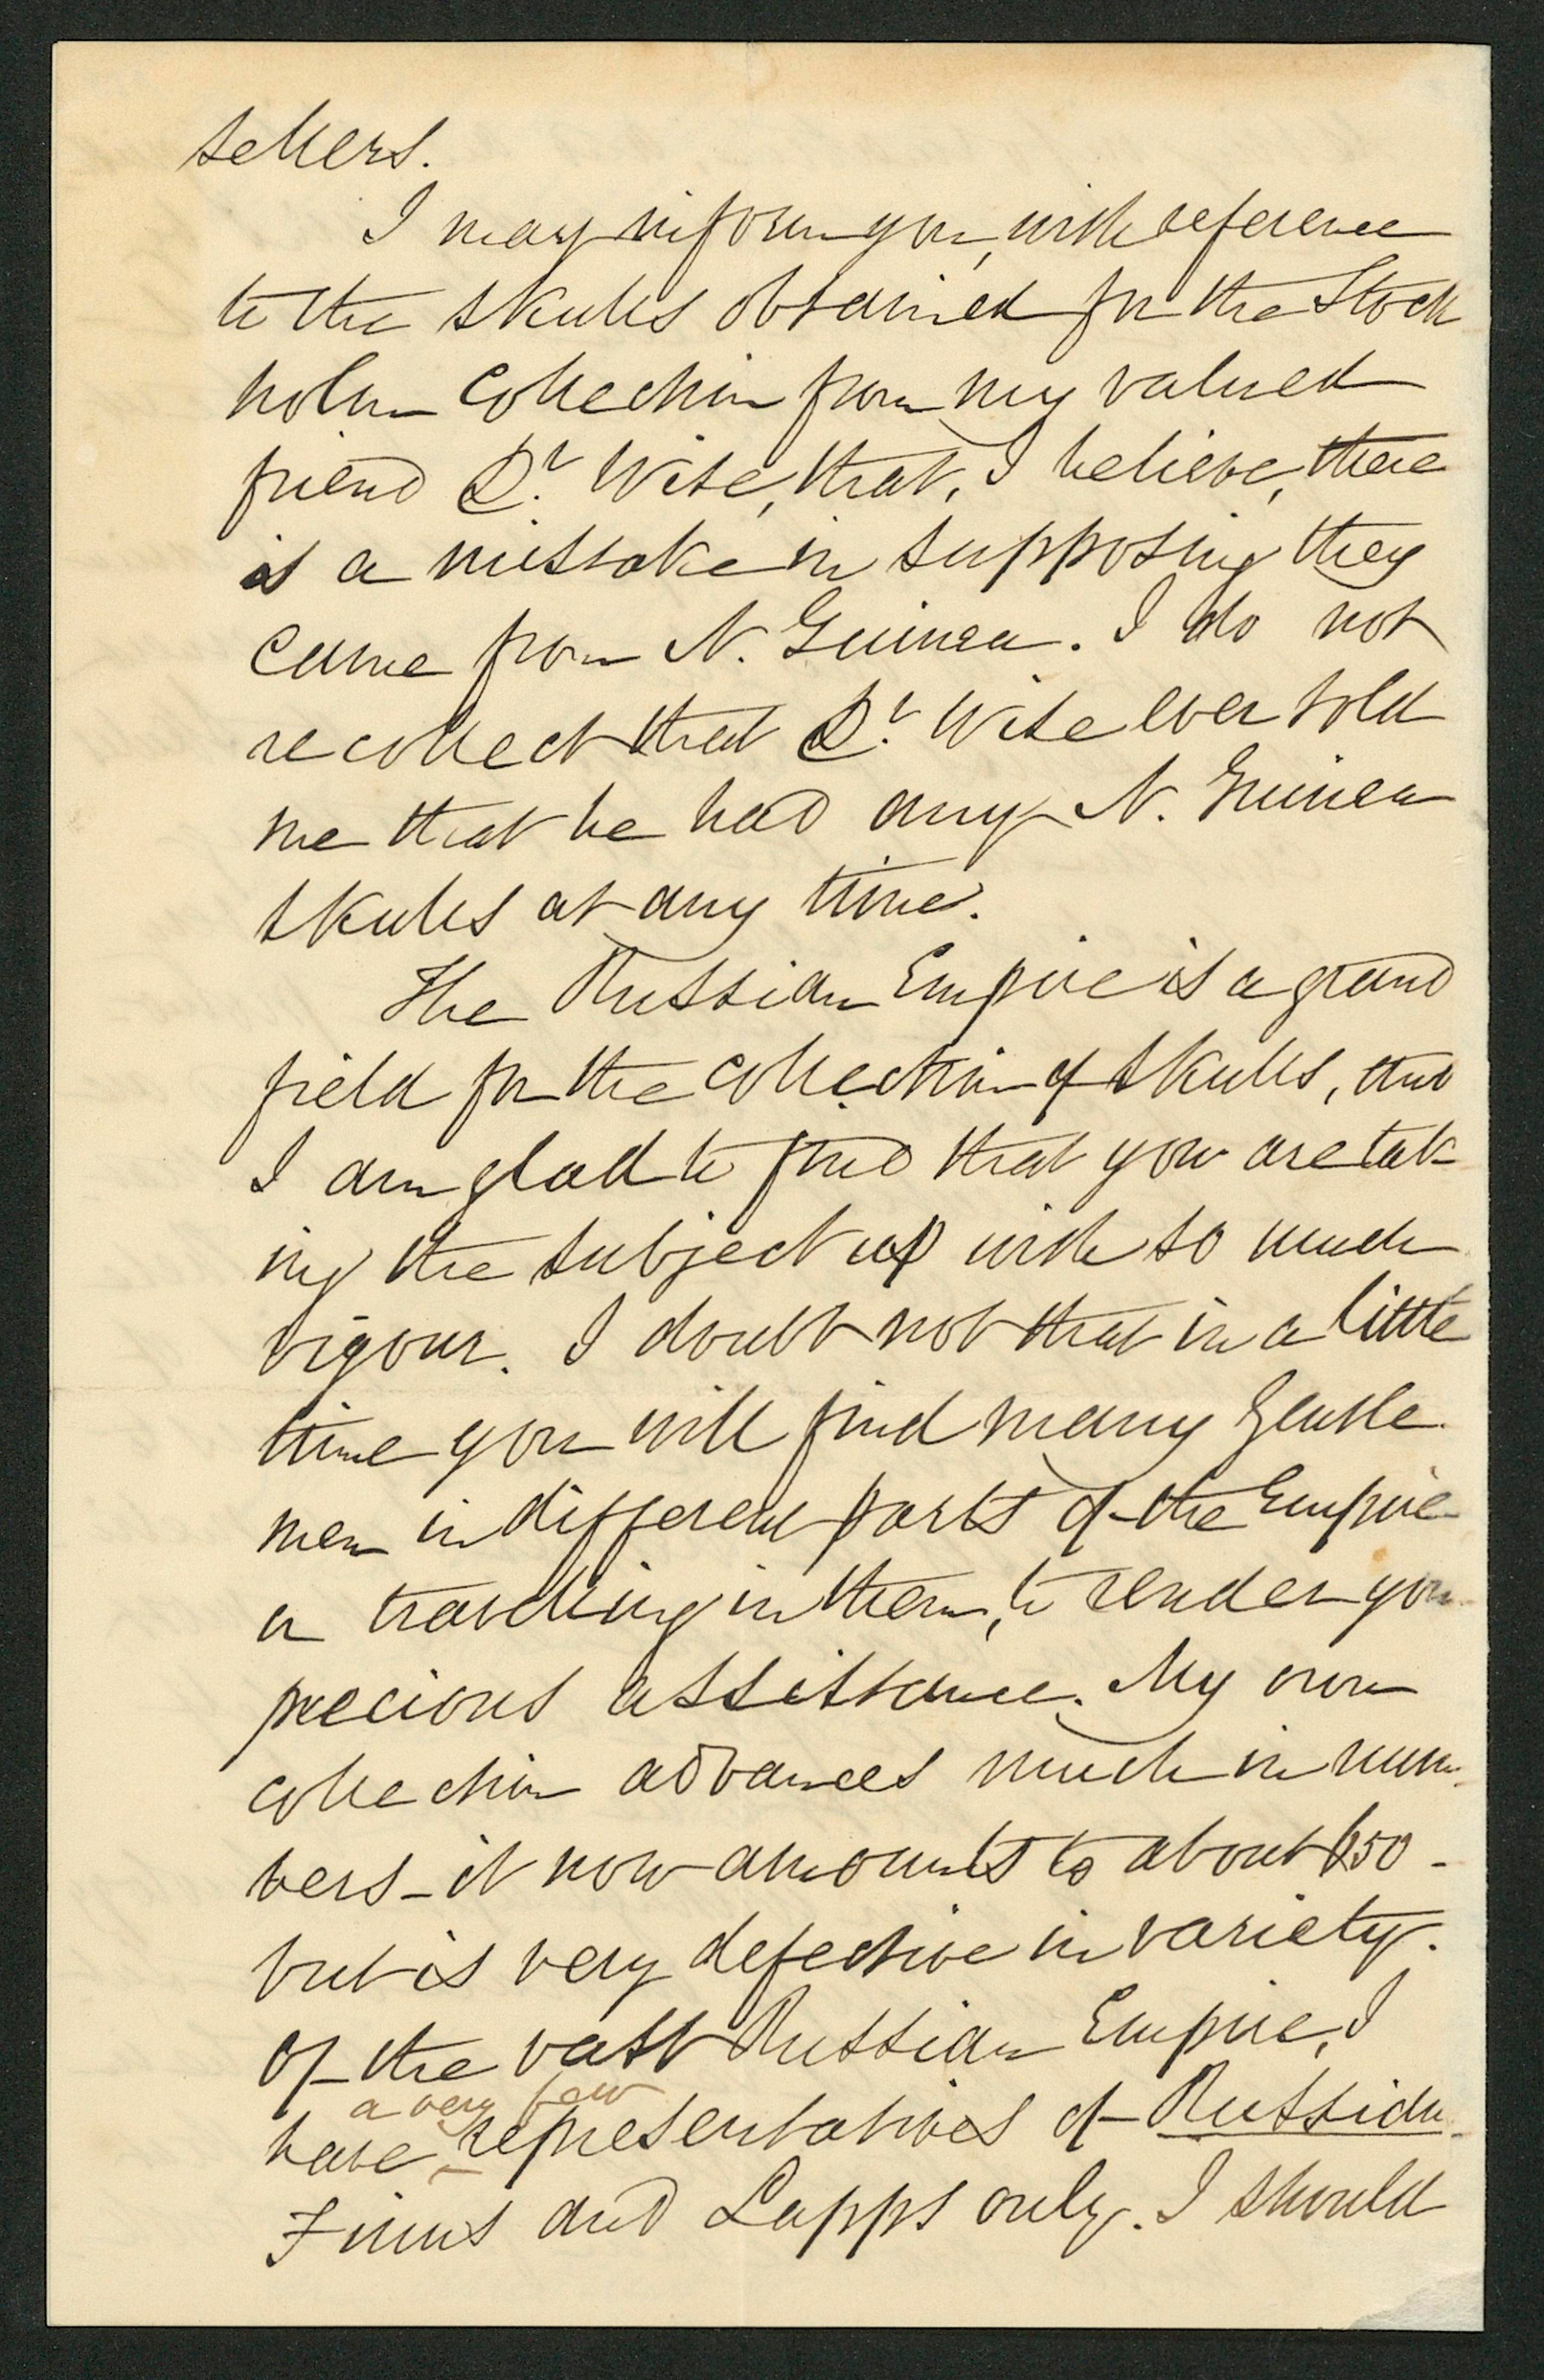 sellers.
I may inform you, with reference
to the skulls obtained for the Stock
holm Collection from my valued
friend Dr. Wise, that, I believe, there
is a mistake in supposing they
came from N. Guinea. I do not
recollect that Dr. Wise ever told
me that he had any N. Guinea
skulls at any time.
The Russian Empire is a grand
field for the collection of skulls, and
I am glad to find that you are tak
ing the subject up with so much
vigour. I doubt not that in a little
time you will find many Gentle
men in different parts of the Empire
or travelling in them, to render you
precious assistance. My own
collection advances much in num
bers - it now amounts to about 650 -
but is very defective in variety.
Of the vast Russian Empire, I
a very few
have representatives of Russian
Finns and Lapps only. I should